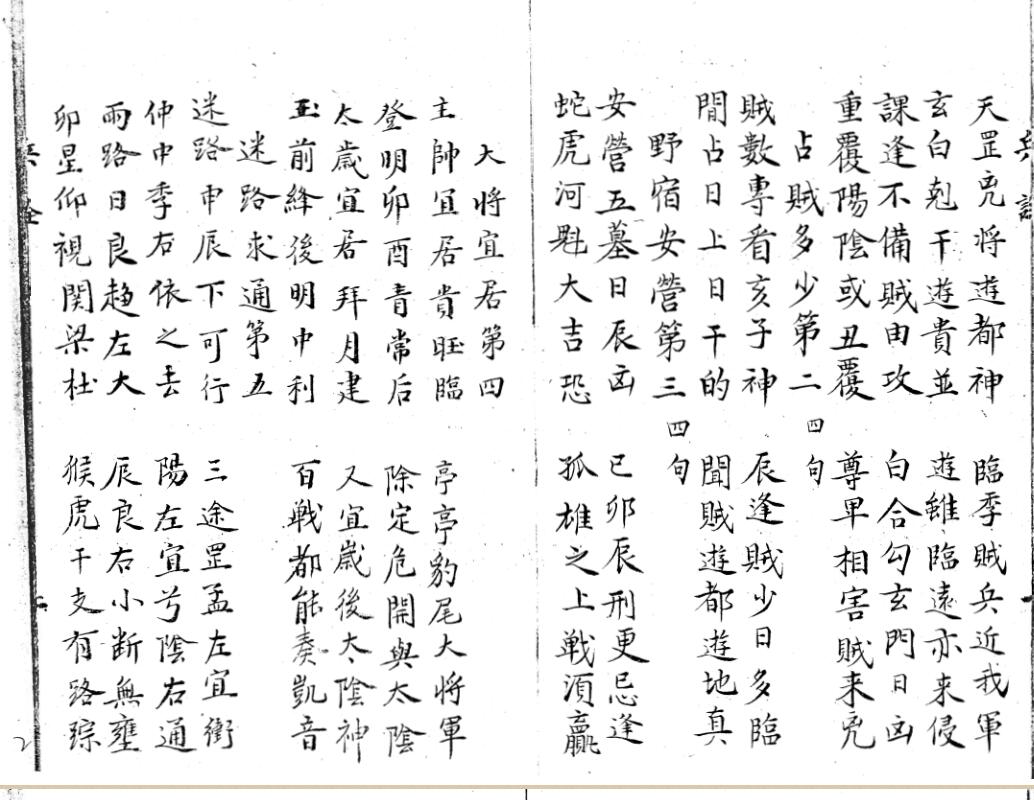 天罡兇将遊都神 臨季賊兵近我軍
玄白剋干遊貴並 遊雖臨遠亦来侵
課逢不備賊由攻 白合勾玄門日凶
重覆陽陰或丑覆 尊卑相害賊来兇
占賊多少第二 四句
賊數專看亥子神 辰逢賊少日多臨
間占日上日干的 聞賊遊都遊地真
野宿安營第三 四句
安營五墓日辰凶 已卯辰刑更忌逢
蛇虎河魁大吉恐 孤雄之上戦湏贏
大将宜居第四
主帥宜居貴旺臨 亭亭豹尾大将軍
登明卯酉青常后 除定危開與太陰
太歲宜居拜月建 又宜歲後太陰神
五前絳後明中利 百戦都能奏凱音
迷路求通第五
迷路申辰下可行 三途罡孟左宜衝
仲中季右依之去 陽左宜兮陰右通
兩路日良趋左大 辰良右小断無壅
卯星仰視関梁杜 猴虎干支有路踪
2